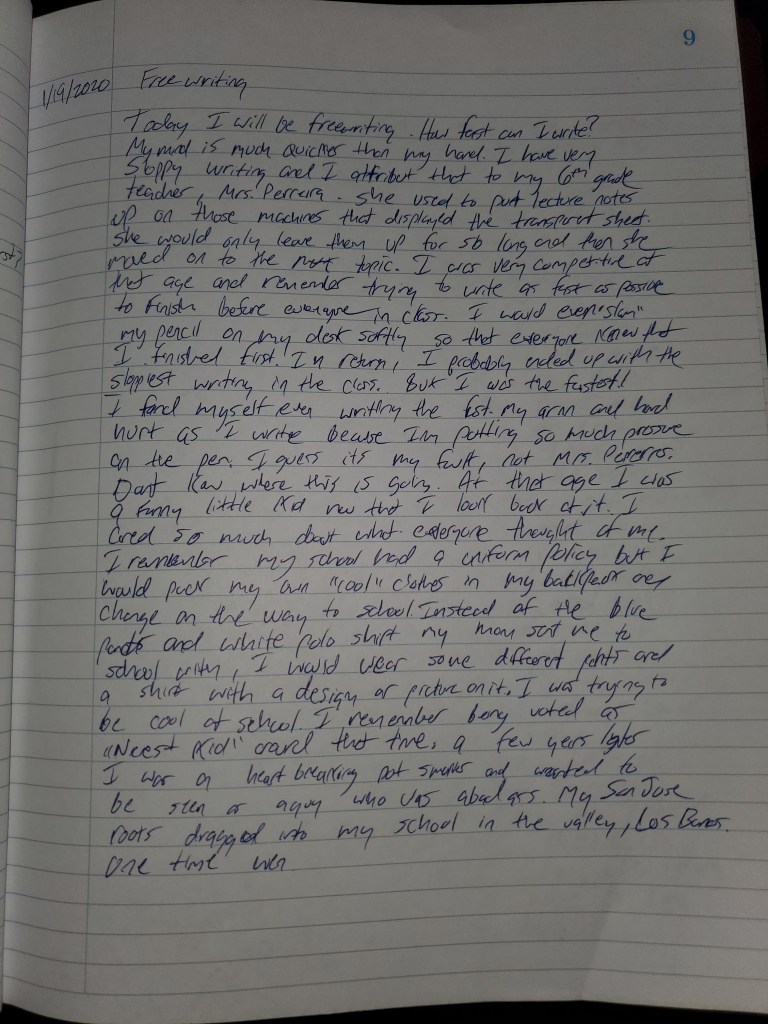 9
1/19/2020 Free writing
Today I will be freewriting. How fast can I write?
My mind is much quicker than my hand. I have very
sloppy writing and I attribut that to my 6th grade
teacher, Mrs. Perreira. She used to put lecture notes
up on those machines that displayed the sheet.
She would only leave them up for so long and then she
moved on to the next topic. I was very competitive at
that age and remember trying to write as fast as possive
to finish before everyone in class. I would even "slam"
my pencil on my desk softly so that everyone knew that
I finished first. In return, I probably ended up with the
sloppiest writing in the class. But I was the fastest!
I find myself even writing the fast. My arm and hand
hurt as I write because I'm putting so much
on the pen. I guess it's my fault, not Mrs.
Dont know where this is going. At that age I was
a funny little kid now that I look back at it. I
cared so much about what everyone thought of me.
I remember my school had a uniform policy but I
would pack my own "cool" clothes in my backpack and
change on the way to school. Instead of the blue
pants and white polo shirt my mom sent me to
school with, I would wear some different pants and
a shirt with a design or picture on it. I was trying to
be cool at school. I remember being voted as
"Kid" around that time. a few years later
I was a heart breaking pot smoker and wanted to
be seen as a guy who was a bad ass. My San Jose
roots dragged into my school in the valley, Los Banos.
One time wen